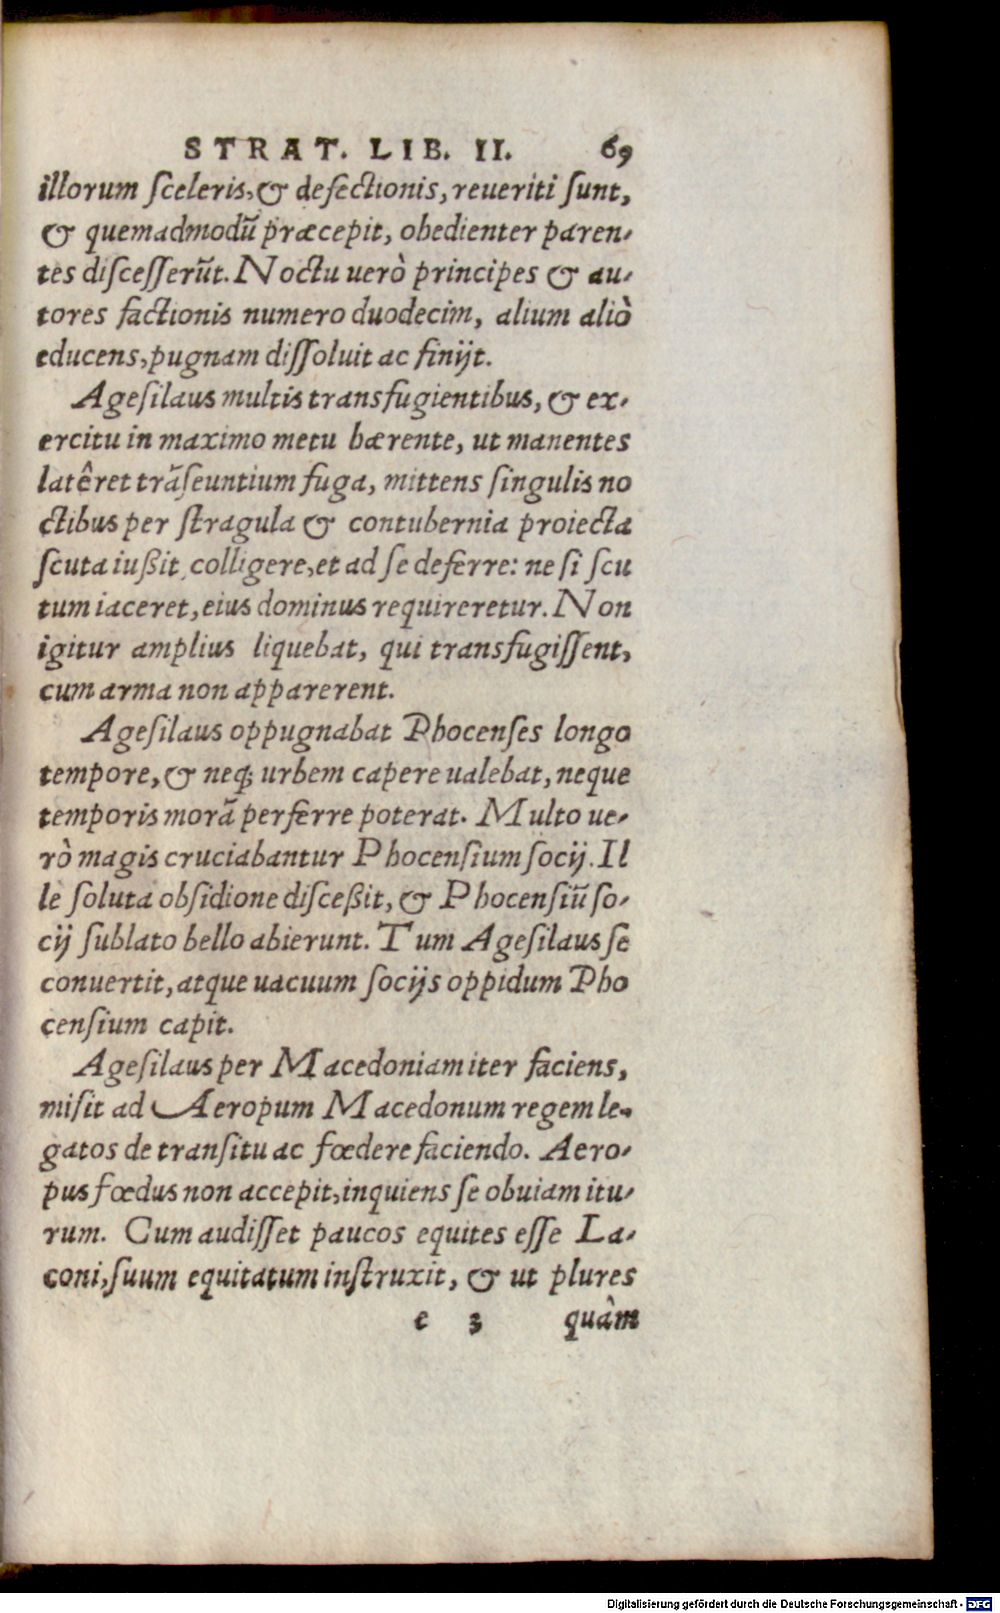 STRAT. LIB. II. 69
illorum sceleris, & defectionis, reueriti sunt,
& quemadmodū præcepit, obedienter paren-
tes discesserūt. Noctu uerò principes & au-
tores factionis numero duodecim, alium aliò
educens, pugnam dissoluit ac finijt.
Agesilaus multis transfugientibus, & ex-
ercitu in maximo metu hærente, ut manentes
latêret trāseuntium fuga, mittens singulis no
ctibus per stragula & contubernia proiecta
scuta iußit colligere, et ad se deferre: ne si scu
tum iaceret, eius dominus requireretur. Non
igitur amplius liquebat, qui transfugissent,
cum arma non apparerent.
Agesilaus oppugnabat Phocenses longo
tempore, & neq; urbem capere ualebat, neque
temporis morā perferre poterat. Multo ue-
rò magis cruciabantur Phocensium socij. Il
le soluta obsidione disceßit, & Phocensiū so-
cij sublato bello abierunt. Tum Agesilaus se
conuertit, atque uacuum socijs oppidum Pho
censium capit.
Agesilaus per Macedoniam iter faciens,
misit ad Aeropum Macedonum regem le-
gatos de transitu ac fœdere faciendo. Aero-
pus fœdus non accepit, inquiens se obuiam itu-
rum. Cum audisset paucos equites esse La-
coni, suum equitatum instruxit, & ut plures
e 3 quàm
Digitalisierung gefördert durch die Deutsche Forschungsgemeinschaft - DFG